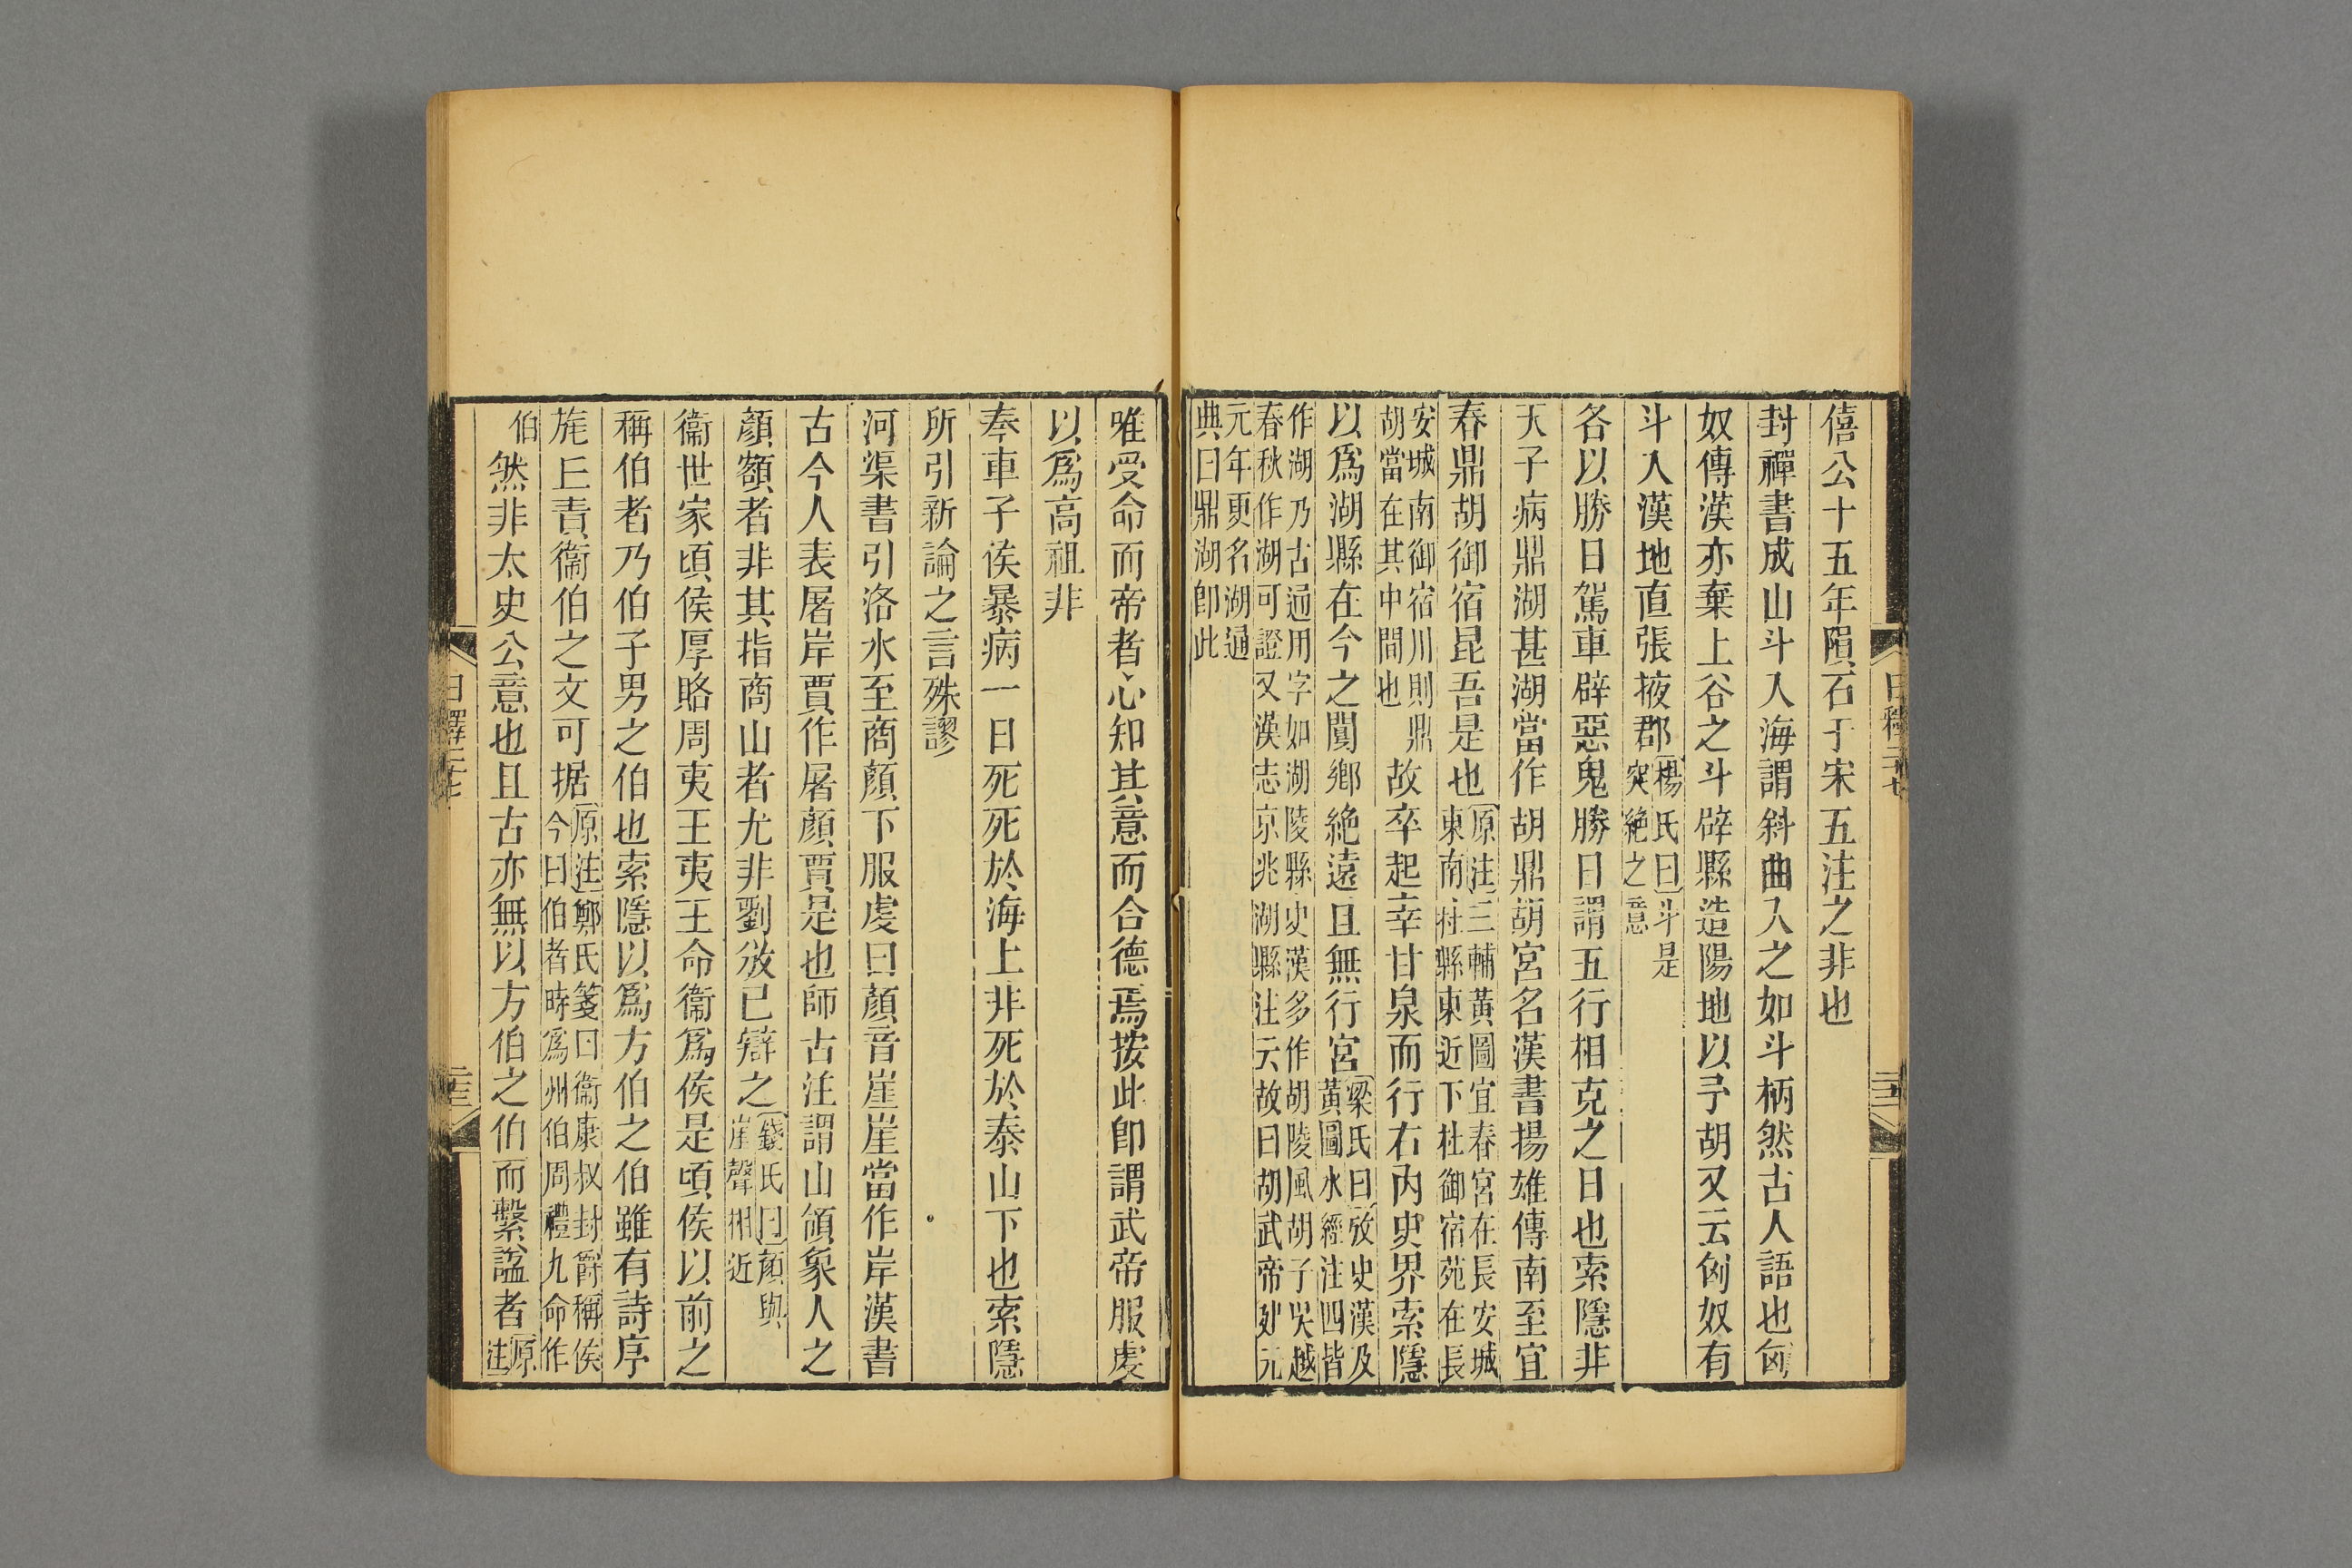 僖公十五年隕石于宋五注之非也
封禪書成山斗入海謂斜曲入之如斗柄然古人語也匈
奴傳漢亦棄上谷之斗辟縣造陽地以予胡又云匈奴有
斗入漢地直張掖郡楊氏曰斗是
突絕之意
各以勝日駕車辟惡鬼勝日謂五行相克之日也索隱非
天子病鼎湖甚湖當作胡鼎胡宮名漢書揚雄傳南至宜
春鼎胡御宿昆吾是也原注三輔黃圖宜春宮在長安城
東南杜縣東近下杜御宿苑在長
安城南御宿川則鼎
胡當在其中間也故卒起幸甘泉而行右內史界索隱
以爲湖縣在今之閿鄉絕遠且無行宮梁氏曰攷史漢及
黃圖水經注四皆
作湖乃古通用字如湖陵縣史漢多作胡陵風胡子吳越
春秋作湖可證又漢志京兆湖縣注云故曰胡武帝建元
元年更名湖通
典曰鼎湖卽此
唯受命而帝者心知其意而合德焉按此卽謂武帝服虔
以爲高祖非
奉車子侯暴病一日死死於海上非死於泰山下也索隱
所引新論之言殊謬
河渠書引洛水至商顏下服虔曰顏音崖崖當作岸漢書
古今人表屠岸賈作屠顏賈是也師古注謂山領象人之
顏額者非其指商山者尤非劉攽已辯之錢氏曰顏與
崖聲相近
衞世家頃侯厚賂周夷王夷王命衞爲侯是頃侯以前之
稱伯者乃伯子男之伯也索隱以爲方伯之伯雖有詩序
旄丘責衞伯之文可据原注鄭氏箋曰衞康叔封爵稱侯
今曰伯者時爲州伯周禮九命作
伯然非太史公意也且古亦無以方伯之伯而繫諡者原
注
日釋二十七